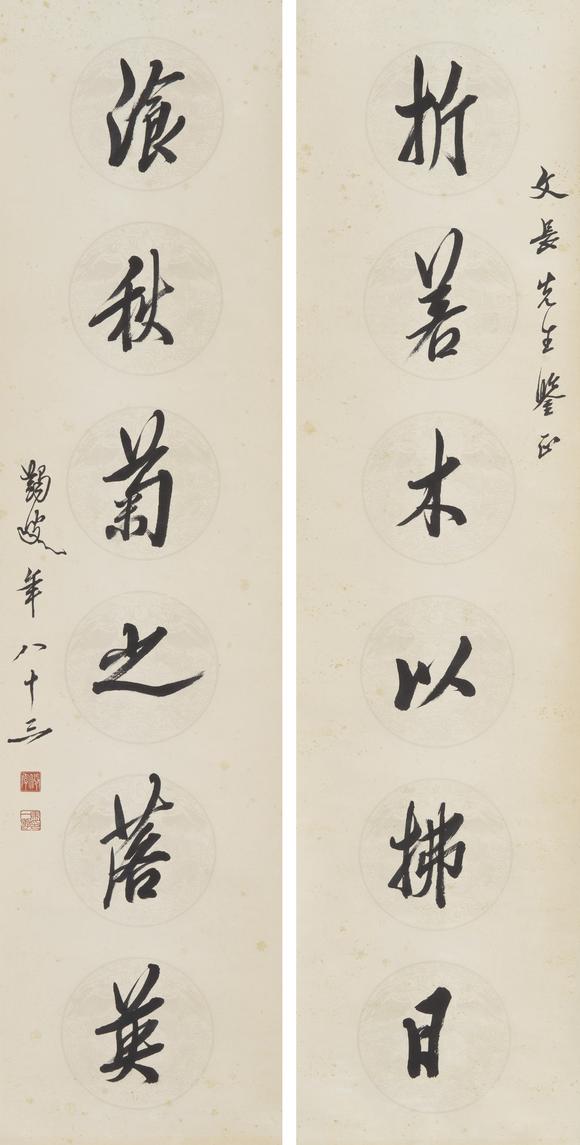 文長先生鑒正
折若木以拂日
湌秋菊之落英
鞠叟年八十三